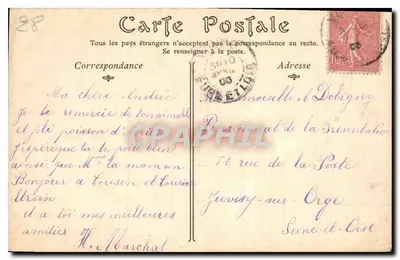 28
Carte Postale
Tous les pays étrangers n'acceptent pas la correspondance au recto.
Se renseigner à la poste.
Correspondance
Adresse
Ma chère Andrée
Je te remercie de ton aimable
et joli poisson d'avril
j'espère que tu te porte bien
ainsi que Mme ta maman
Bonjour à Cousin et Cousine
et à toi mes meilleures
amitiés
H. Marchal
Mademoiselle A Doligny
Pensionnat de la Présentation
12 rue de la Poste
Juvisy-sur-Orge
Seine et Oise
EURE ET LOIR
CPAPHIL